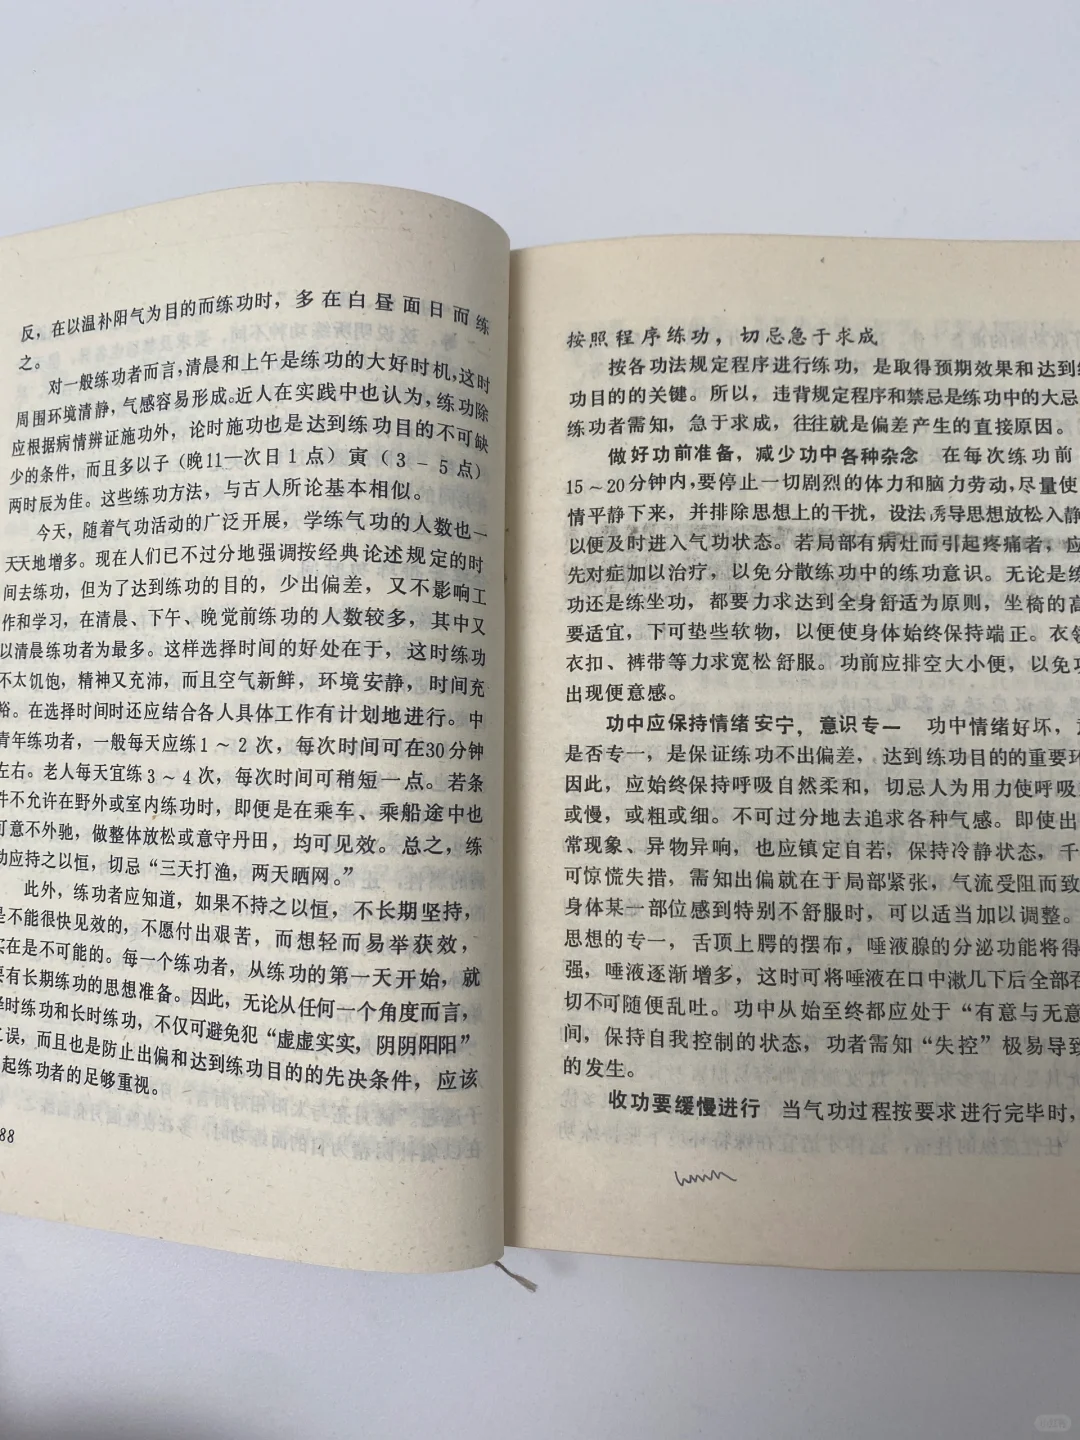 反，在以温补阳气为目的而练功时，多在白昼面日而练
之。
对一般练功者而言，清晨和上午是练功的大好时机，这时
周围环境清静，气感容易形成。近人在实践中也认为，练功除
应根据病情辨证施功外，论时施功也是达到练功目的不可缺
少的条件，而且多以子（晚11—次日1点）寅（3－5点）
两时辰为佳。这些练功方法，与古人所论基本相似。
今天，随着气功活动的广泛开展，学练气功的人数也一
天天地增多。现在人们已不过分地强调按经典论述规定的时
间去练功，但为了达到练功的目的，少出偏差，又不影响工
作和学习，在清晨、下午、晚觉前练功的人数较多，其中又
以清晨练功者为最多。这样选择时间的好处在于，这时练功
不太饥饱，精神又充沛，而且空气新鲜，环境安静，时间充
裕。在选择时间时还应结合各人具体工作有计划地进行。中
青年练功者，一般每天应练1～2次，每次时间可在30分钟
左右。老人每天宜练3～4次，每次时间可稍短一点。若条
件不允许在野外或室内练功时，即便是在乘车、乘船途中也
可意不外驰，做整体放松或意守丹田，均可见效。总之，练
功应持之以恒，切忌“三天打渔，两天晒网。”
此外，练功者应知道，如果不持之以恒，不长期坚持，
是不能很快见效的，不愿付出艰苦，而想轻而易举获效，
实在是不可能的。每一个练功者，从练功的第一天开始，就
要有长期练功的思想准备。因此，无论从任何一个角度而言，
择时练功和长时练功，不仅可避免犯“虚虚实实，阴阴阳阳”
之误，而且也是防止出偏和达到练功目的的先决条件，应该
起练功者的足够重视。
88
按照程序练功，切忌急于求成
按各功法规定程序进行练功，是取得预期效果和达到练
功目的的关键。所以，违背规定程序和禁忌是练功中的大忌
练功者需知，急于求成，往往就是偏差产生的直接原因。
做好功前准备，减少功中各种杂念 在每次练功前
15～20分钟内，要停止一切剧烈的体力和脑力劳动，尽量使
情平静下来，并排除思想上的干扰，设法诱导思想放松入静
以便及时进入气功状态。若局部有病灶而引起疼痛者，应
先对症加以治疗，以免分散练功中的练功意识。无论是练
功还是练坐功，都要力求达到全身舒适为原则，坐椅的高
要适宜，下可垫些软物，以便使身体始终保持端正。衣领
衣扣、裤带等力求宽松舒服。功前应排空大小便，以免功
出现便意感。
功中应保持情绪安宁，意识专一 功中情绪好坏，意
是否专一，是保证练功不出偏差，达到练功目的的重要环
因此，应始终保持呼吸自然柔和，切忌人为用力使呼吸
或慢，或粗或细。不可过分地去追求各种气感。即使出
常现象、异物异响，也应镇定自若，保持冷静状态，千
可惊慌失措，需知出偏就在于局部紧张，气流受阻而致
身体某一部位感到特别不舒服时，可以适当加以调整。
思想的专一，舌顶上腭的摆布，唾液腺的分泌功能将得
强，唾液逐渐增多，这时可将唾液在口中漱几下后全部吞
切不可随便乱吐。功中从始至终都应处于“有意与无意
间，保持自我控制的状态，功者需知“失控”极易导致
的发生。
收功要缓慢进行 当气功过程按要求进行完毕时，